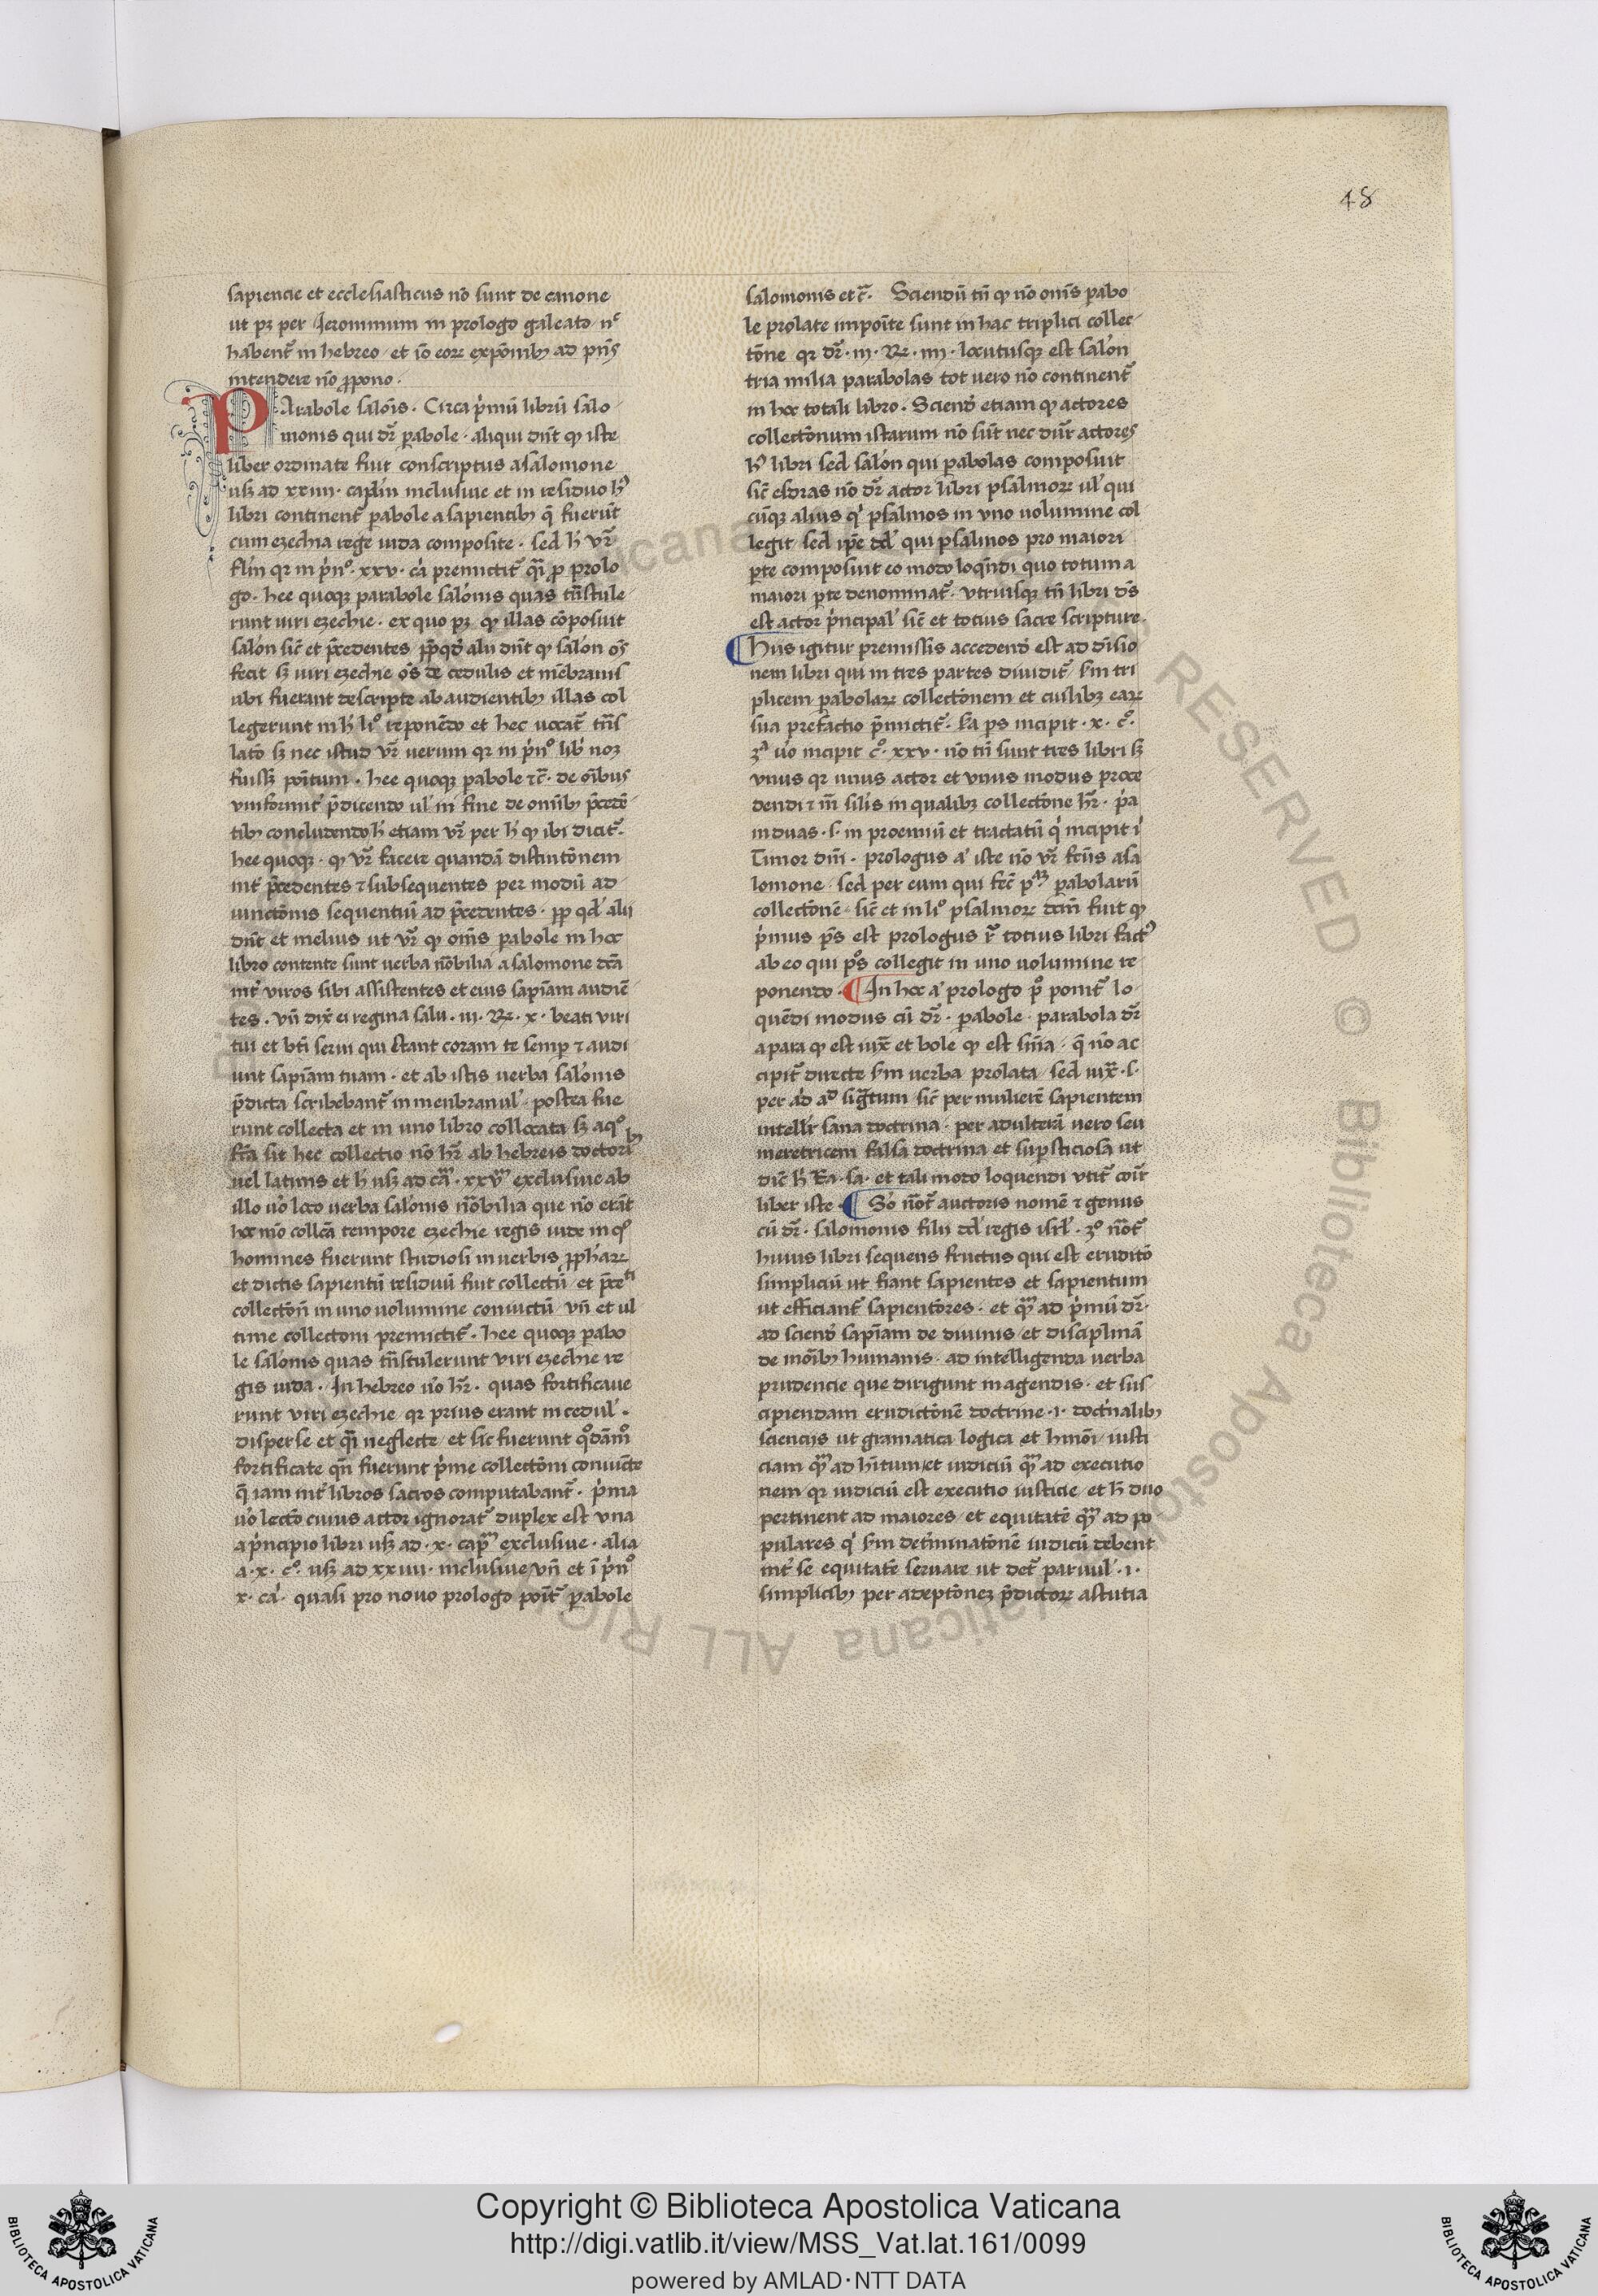 48
sapiencie et ecclesiasticus nō sunt de canone
ut pꝫ per Jeronimum in prologo galeato nᶜ
habent᷑ in hebreo et iō eoꝝ exp̄onibꝫ ad p̄ns
intendere nō ꝓpono.
PArabole salōis. Circa p̓mū librū salo
monis qui dr̄ ꝑabole. aliqui dn̄t ꝙ iste
liber ordinate fuit conscriptus a salomone
usꝫ ad xxiiii. capl̄m inclusiue et in residuo hꝰ
libri continent᷑ ꝑabole a sapientibꝫ q̄ fuerūt
cum ezechia rege iuda composite. sed h̓ vr̄
flm̄ qr in p̓nº. xxv. cā premictit᷑ q̄i ꝓ prolo
go. hee quoqꝫ parabole salōnis quas tn̄stule
runt uiri ezechie. ex quo pꝫ ꝙ illas cōposuit
salōn sic̄ et p̄cedentes ꝓpt̓qd̓ alii dn̄t ꝙ salōn oēs
fecit sꝫ uiri ezechie oēs de cedulis et mēbranis
ubi fuerant descripte ab audientibꝫ illas col
legerunt in h̓ liº reponēdo et hec uocat᷑ tn̄s
latō sꝫ nec istud vr̄ uerum qr in p̓nº libri noꝫ
fuissꝫ poītum. hee quoqꝫ ꝑabole ⁊c̄. de oībus
uniformit᷑ p̄dicendo ul̓ in fine de omībꝫ p̄cedē
tibꝫ concludendo h̓ etiam vr̄ per h̓ ꝙ ibi dicit᷑.
hee quoqꝫ. ꝙ vr̄ facere quandā distinctōnem
int᷑ p̄cedentes ⁊ subsequentes per modū ad
iunctōnis sequentiū ad p̄cedentes. ꝓpt̓ qd̓ alii
dn̄t et melius ut vr̄ ꝙ oms̄ ꝑabole in hoc
libro contente sunt uerba nōbilia a salomone dc̄a
int᷑ viros sibi assistentes et eius sapīam audiē
tes. vn̄ dix̄ ei regina saba. iii. Rꝫ. x. beati viri
tui et bt̄i serui qui stant coram te semꝑ ⁊ audi
unt sapīam tuam. et ab istis uerba salōnis
p̄dicta scribebant᷑ in menbranul̓. postea fue
runt collecta et in uno libro collocata sꝫ a qº
fc̄a sit hec collectio nō hr̄ ab hebreis doctoribꝫ
uel latinis et h̓ usꝫ ad cāᵐ. xxvᵐ exclusiue ab
illo uō loco uerba salōnis nōbilia que nō erāt
hoc mō collc̄a tempore ezechie regis iude in qº
homines fuerunt studiosi in uerbis ꝓph̓aꝝ
et dictis sapientū residuū fuit collectū et p̄ce
collectōi in uno uolumine coniūctū vn̄ et ul
time collectoni premictit᷑. hee quoqꝫ ꝑabo
le salōnis quas tn̄stulerunt viri ezechie re
gis iuda. In hebreo uō hr̄. quas fortificaue
runt viri ezechie qr prius erant in cedul̓.
disperse et q̄i neglecte et sic fuerunt qºdāmº
fortificate qn̄ fuerunt p̓me collectōni coniūcte
q̄ iam int᷑ libros sacros computabant᷑. p̓ma
uō lectō cuius actor ignorat᷑ duplex est vna
a p̓ncipio libri usꝫ ad. x. capᵐ exclusiue. alia
a. x. cº. usꝫ ad xxiiii. inclusiue vn̄ et ī p̓nº
x. cā. quasi pro nouo prologo poīt᷑ ꝑabole
salomonis et c̄. Sciendū tn̄ ꝙ nō oms̄ ꝑabo
le prolate impoīte sunt in hac triplici collec
tōne qr dr̄. iii. Rꝫ. iiii. locutusqꝫ est salōn
tria milia parabolas tot uero nō continent᷑
in hoc totali libro. Sciend̓ etiam ꝙ actores
collectōnum istarum nō sūt nec dn̄r actores
hꝰ libri sed salōn qui ꝑabolas composuit
sic̄ esdras nō dr̄ actor libri psalmoꝝ ul̓ qui
cūqꝫ alius q̓ psalmos in vno uolumine col
legit sed ip̄e dd̓ qui psalmos pro maiori
ꝑte composuit eo modo loquēdi quo totum a
maiori ꝑte denominat᷑. vtriusqꝫ tn̄ libri ds̄
est actor p̓ncipal̓ sic̄ et totius sacre scripture.
Hiis igitur premissis accedend̓ est ad diuisio
nem libri qui in tres partes diuidit᷑ sm̄ tri
plicem ꝑabolaꝝ collectōnem et cuilibꝫ eaꝝ
sua prefactio p̄mictit᷑. sc̄da ps incipit. x. cº.
3ᵃ uō incipit cº. xxv. nō tn̄ sunt tres libri sꝫ
vnus qr unus actor et vnus modus proce
dendi ⁊ mᵃ silis in qualibꝫ collectōne hr̄. p̓a
in duas. s. in proemiū et tractatū q̓ incipit ī
Timor dn̄i. prologus aū iste nō vr̄ fc̄us a sa
lomone. sed per eum qui fec̄ pᵃᵐ ꝑabolarū
collectōnē. sic̄ et in liº psalmoꝝ dc̄m fuit ꝙ
p̓mus ps̄ est prologus rᵒ totius libri factꝰ
ab eo qui pᵒs collegit in uno uolumine re
ponendo. In hoc aū prologo pº ponit᷑ lo
quēdi modus cū dr̄. ꝑabole. parabola dr̄
a para ꝙ est iuxᵃ et bole ꝙ est sn̄ia. q̄ nō ac
cipit᷑ directe sm̄ uerba prolata sed iuxᵃ. s.
per aᵈ aᵈ signᵃtum sic̄ per mulierē sapientem
intell̓r sana doctrina. per adulterā uero seu
meretricem falsa doctrina et suꝑsticiosa ut
dic̄ h̓ Ra. sa. et tali modo loquendi utit᷑ coīt᷑
liber iste. So nōt᷑ auctoris nomē ⁊ genus
cū dr̄. salomonis filii dd̓ regis isrl̓. 3º nōt᷑
huius libri sequens fructus qui est eruditō
simpliciū ut fiant sapientes et sapientum
ut efficiant᷑ sapientōres. et qᵐ ad p̓mū dr̄.
ad sciend̓ sapīam de diuinis et disciplinā
de morībꝫ humanis. ad intelligenda uerba
prudencie que dirigunt in agendis. et sus
cipiendam eruditōnē doctrine. i. doctʼnalibꝫ
sciencijs ut gramatica logica et hmōi iusti
ciam qᵐ ad h̓itum et iudiciū qᵐ ad executio
nem qr iudiciū est executio iusticie et h̓ duo
pertinent ad maiores et equitatē qᵐ ad po
pulares q̓ sm̄ det᷑minatōnē iudicū debent
int᷑ se equitatē seruare ut det᷑ paruul̓. i.
simplicibꝫ per adeptōneꝫ p̄dictoꝝ astutia
Copyright © Biblioteca Apostolica Vaticana
http://digi.vatlib.it/view/MSS_Vat.lat.161/0099
powered by AMLAD·NTT DATA
BIBLIOTECA APOSTOLICA VATICANA
BIBLIOTECA APOSTOLICA VATICANA
© Biblioteca Apostolica Vaticana ALL RIGHTS RESERVED